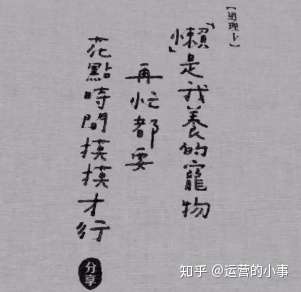 【道理卡】
「懶」是我養的寵物
再忙都要
花點時間摸摸才行
分享
知乎 @运营的小事